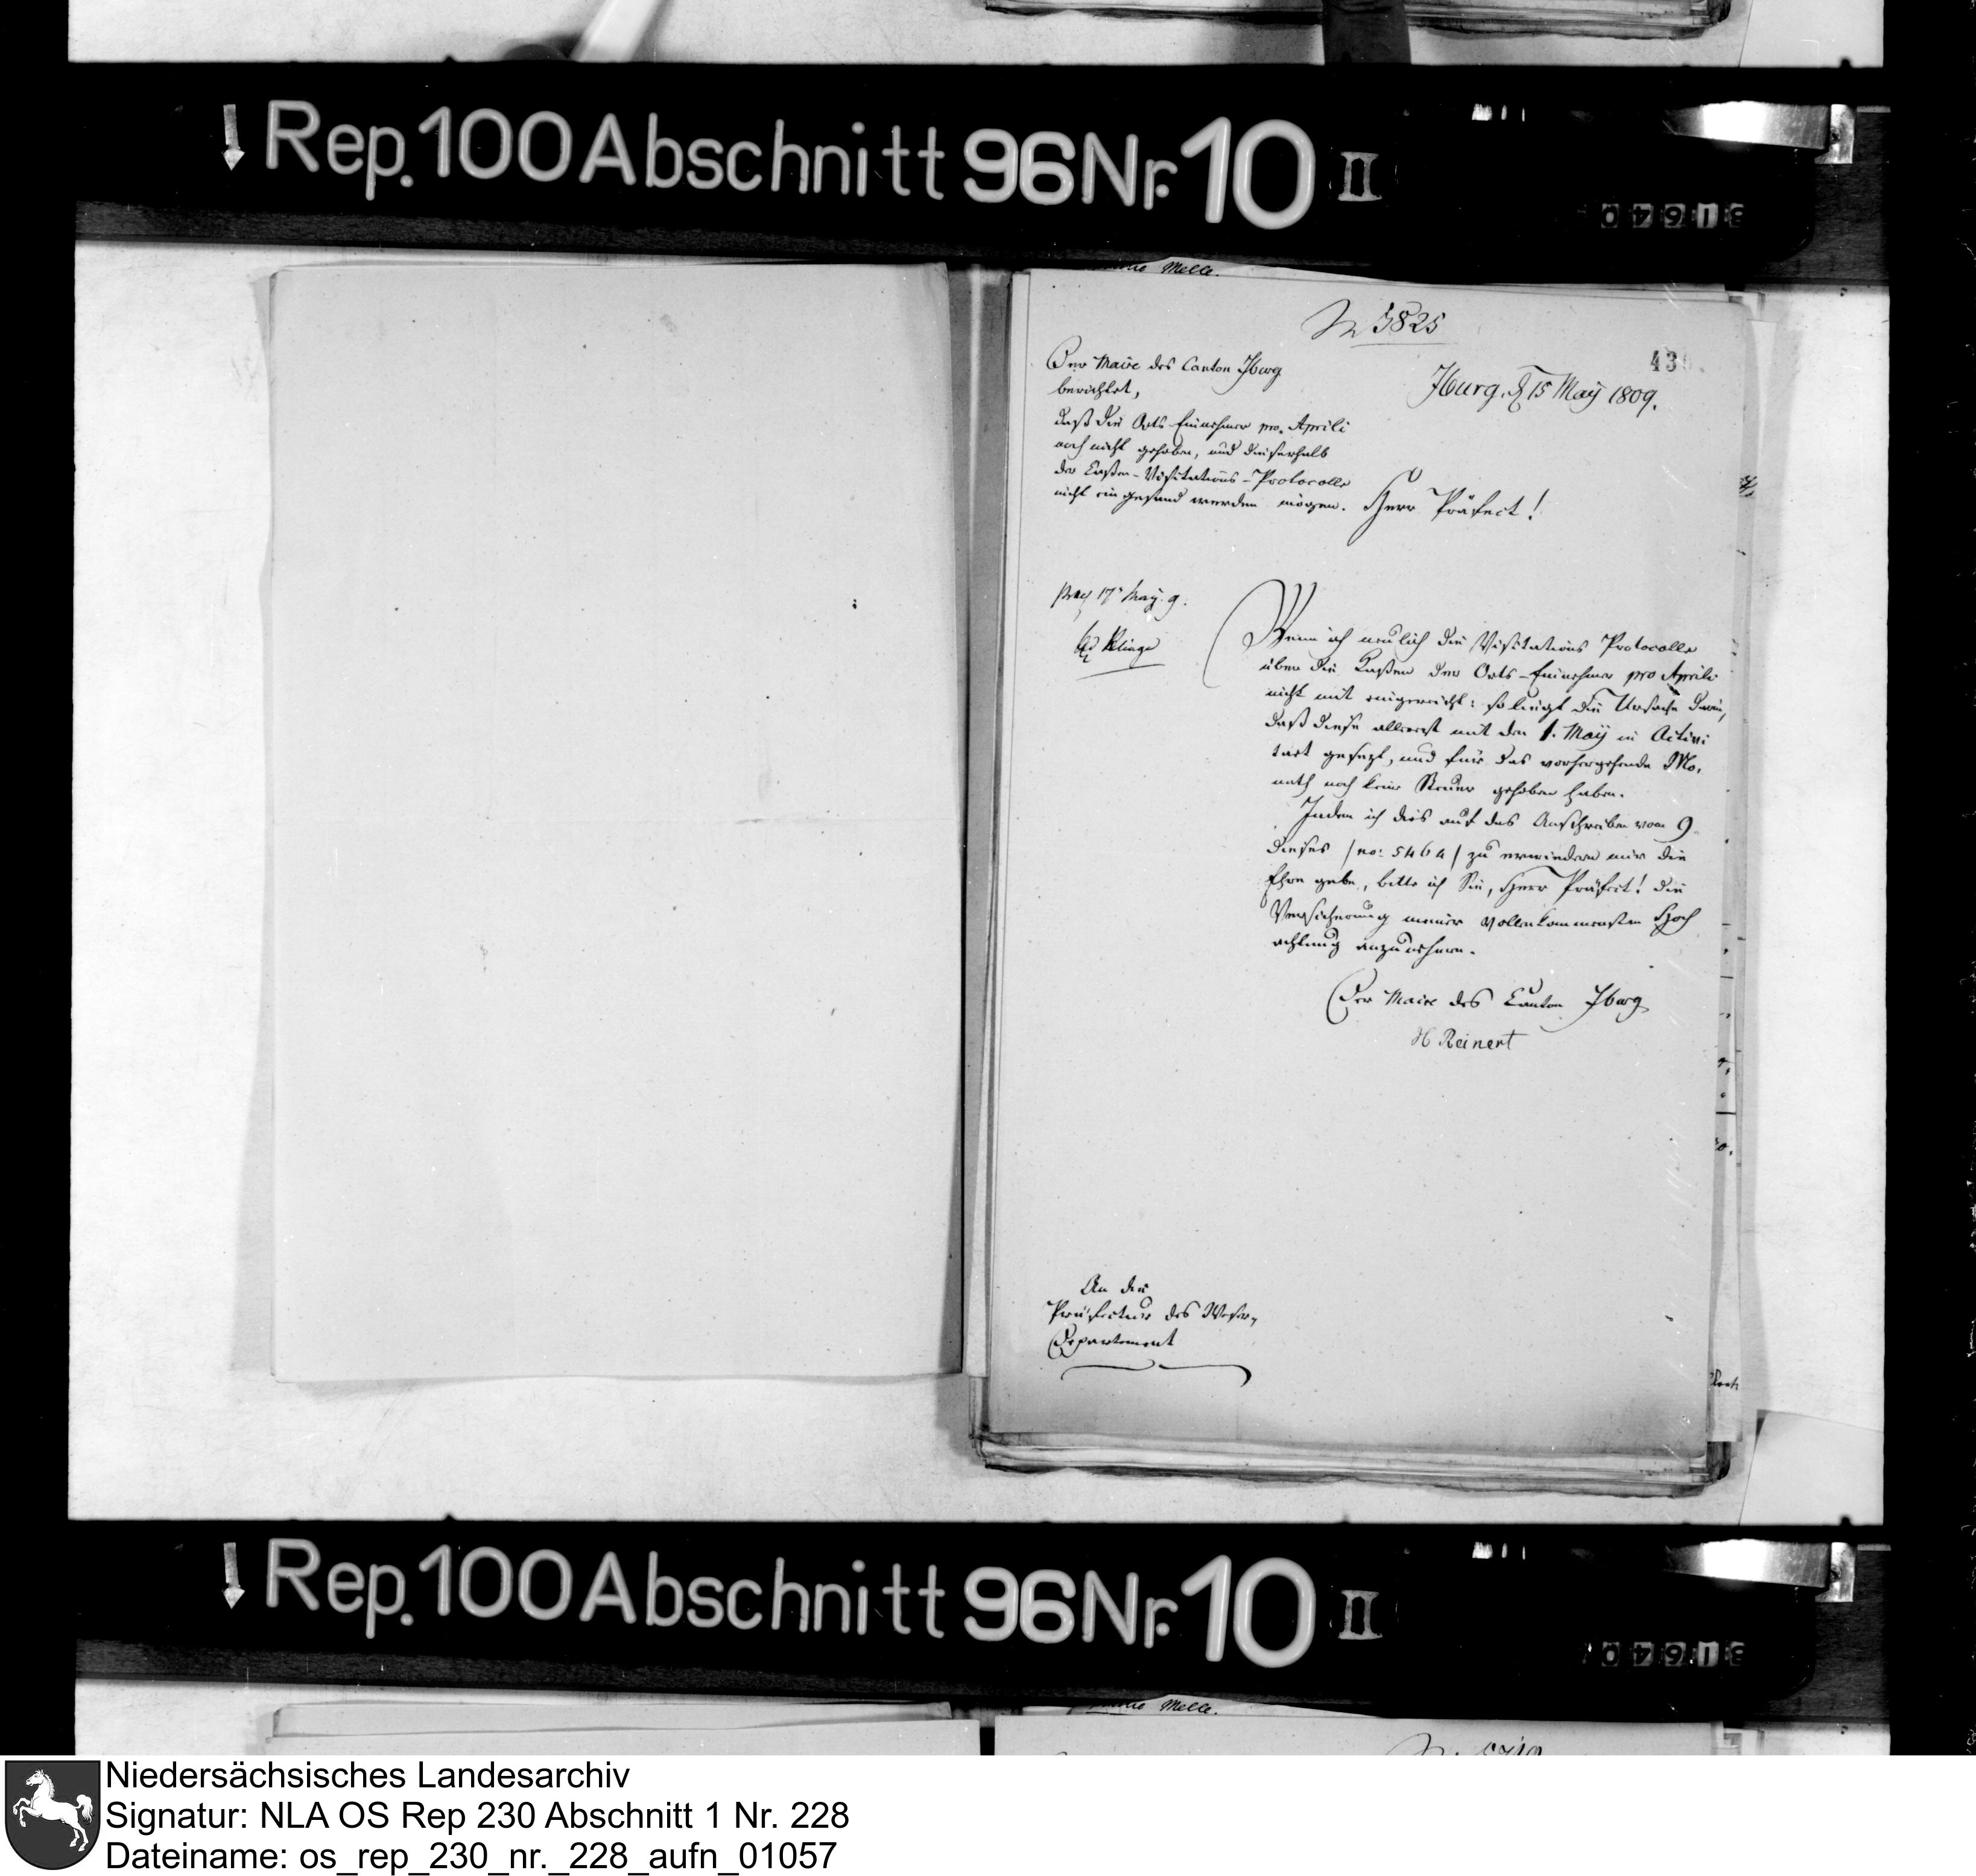 Rep. 100 Abschnitt 96 Nr. 10 II
31640
Melle.
N 5825
43
Der Maire des Canton Iburg
berichtet,
daß die Orts Einnehmer pro. Aprili
noch nicht gehoben, und dieserhalb
die Cassen-Visitations-Protocolle
nicht eingesand werden mögen.
Iburg, d 15 Maÿ 1809.
Herr Präfect!
17 Maÿ. 9.
Wenn ich neulich die Visitations Protocolle
über die Cassen der Orts-Einnehmer pro Aprili
nicht mit eingereicht: so liegt die Ursache darin,
daß diese allererst mit den 1. Maÿ in Activi
taet gesezt, und für das vorhergehende Mo,
nath noch keine Steuer gehoben haben.
Indem ich dies auf das Anschreiben vom 9
dieses /no: 5464/ zu erwiedern mir die
Ehre gebe, bitte ich Sie, Herr Präfect! die
Versicherung meiner vollenkommensten Hoch
achtung anzunehmen.
Der Maire des Canton Iburg
H Reinert
An die
Präfectur des Weser,
Departement
Rep. 100 Abschnitt 96 Nr. 10 II
31640
Melle.
Niedersächsisches Landesarchiv
Signatur: NLA OS Rep 230 Abschnitt 1 Nr. 228
Dateiname: os_rep_230_nr._228_aufn_01057